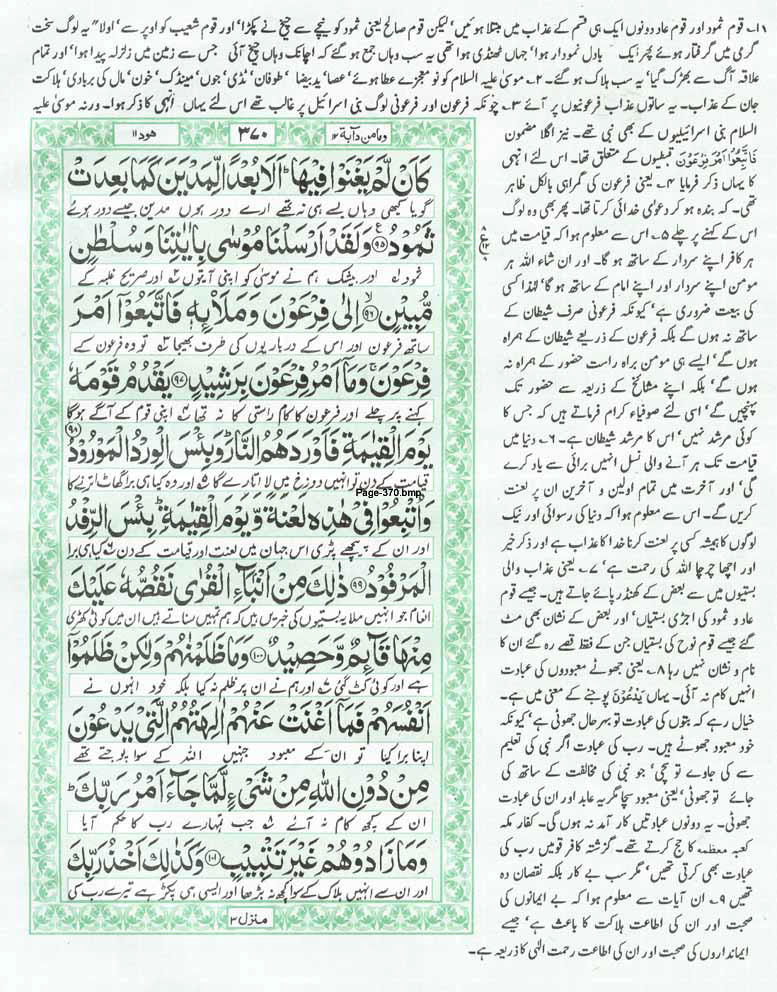 ۱۔ قوم ثمود اور قوم عاد دونوں ایک ہی قسم کے عذاب میں مبتلا ہوئیں' لیکن قوم صالح یعنی ثمود کو نیچے سے چیخ نے پکڑا' اور قوم شعیب کو اوپر سے' اولا" یہ لوگ سخت
گرمی میں گرفتار ہوئے پھر ایک بادل نمودار ہوا' جہاں ٹھنڈی ہوا تھی یہ سب وہاں جمع ہو گئے کہ اچانک وہاں چیخ آئی جس سے زمین میں زلزلہ پیدا ہوا' اور تمام
علاقہ آگ سے بھڑک گیا' یہ سب ہلاک ہو گئے۔ ۲۔ موسیٰ علیہ السلام کو نو معجزے عطا ہوئے' عصا' ید بیضا' طوفان' ٹڈی' جوں' مینڈک' خون' مال کی بربادی' ہلاکت
جان کے عذاب۔ یہ ساتوں عذاب فرعونیوں پر آئے ۳۔ چونکہ فرعون اور فرعونی لوگ بنی اسرائیل پر غالب تھے اس لئے یہاں انہی کا ذکر ہوا۔ ورنہ موسیٰ علیہ
السلام بنی اسرائیلیوں کے بھی نبی تھے۔ نیز اگلا مضمون
فَاتَّبَعُوْٓا اَمْرَ فِرْعَوْنَ قبطیوں کے متعلق تھا۔ اس لئے انہی
کا یہاں ذکر فرمایا ۴۔ یعنی فرعون کی گمراہی بالکل ظاہر
تھی۔ کہ بندہ ہو کر دعویٰ خدائی کرتا تھا۔ پھر بھی وہ لوگ
اس کے کہنے پر چلے ۵۔ اس سے معلوم ہوا کہ قیامت میں
ہر کافر اپنے سردار کے ساتھ ہو گا۔ اور ان شاء اللہ ہر
مومن اپنے سردار اور اپنے امام کے ساتھ ہو گا' لہٰذا کسی
کی بیعت ضروری ہے' کیونکہ فرعونی صرف شیطان کے
ساتھ نہ ہوں گے بلکہ فرعون کے ذریعے شیطان کے ہمراہ
ہوں گے' ایسے ہی مومن براہ راست حضور کے ہمراہ نہ
ہوں گے' بلکہ اپنے مشائخ کے ذریعہ سے حضور تک
پہنچیں گے' اسی لئے صوفیاء کرام فرماتے ہیں کہ جس کا
کوئی مرشد نہیں' اس کا مرشد شیطان ہے۔ ۶۔ دنیا میں
قیامت تک ہر آنے والی نسل انہیں برائی سے یاد کرے
گی' اور آخرت میں تمام اولین و آخرین ان پر لعنت
کریں گے۔ اس سے معلوم ہوا کہ دنیا کی رسوائی اور نیک
لوگوں کا ہمیشہ کسی پر لعنت کرنا خدا کا عذاب ہے اور ذکر خیر
اور اچھا چرچا اللہ کی رحمت ہے' ۷۔ یعنی عذاب والی
بستیوں میں سے بعض کے کھنڈر پائے جاتے ہیں۔ جیسے قوم
عاد و ثمود کی اجڑی بستیاں' اور بعض کے نشان بھی مٹ
گئے جیسے قوم نوح کی بستیاں جن کے فقط قصے رہ گئے ان کا
نام و نشان نہیں رہا ۸۔ یعنی جھوٹے معبودوں کی عبادت
انہیں کام نہ آئی۔ یہاں یَدْعُوْنَ پوجنے کے معنی میں ہے۔
خیال رہے کہ بتوں کی عبادت تو بہرحال جھوٹی ہے' کیونکہ
خود معبود جھوٹے ہیں۔ رب کی عبادت اگر نبی کی تعلیم
سے کی جاوے تو سچی' جو نبی کی مخالفت کے ساتھ کی
جائے تو جھوٹی' یعنی معبود سچا مگر یہ عابد اور ان کی عبادت
جھوٹی۔ یہ دونوں عبادتیں کار آمد نہ ہوں گی۔ کفار مکہ
کعبہ معظمہ کا حج کرتے تھے۔ گزشتہ کافر قومیں رب کی
عبادت بھی کرتی تھیں' مگر سب بے کار بلکہ نقصان دہ
تھیں ۹۔ ان آیات سے معلوم ہوا کہ بے ایمانوں کی
صحبت اور ان کی اطاعت ہلاکت کا باعث ہے' جیسے
ایمانداروں کی صحبت اور ان کی اطاعت رحمت الٰہی کا ذریعہ ہے۔
ومامن دآبة ۱۲ ۳۷۰ ھود ۱۱
كَاَنْ لَّمْ يَغْنَوْا فِيْهَا ۭ اَلَا بُعْدًا لِّمَدْيَنَ كَمَا بَعِدَتْ
گویا کبھی وہاں بسے ہی نہ تھے ارے دور ہوں مدین جیسے دور ہوئے
ثَمُوْدُ ۹۵ وَلَقَدْ اَرْسَلْنَا مُوْسٰى بِاٰيٰتِنَا وَسُلْطٰنٍ
ثمود ۱ اور بیشک ہم نے موسیٰ کو اپنی آیتوں ۲ اور صریح غلبہ کے
مُّبِيْنٍ ۹۶ اِلٰى فِرْعَوْنَ وَمَلَا۟ئِهٖ فَاتَّبَعُوْٓا اَمْرَ
ساتھ فرعون اور اس کے درباریوں کی طرف بھیجا ۳ تو وہ فرعون کے
فِرْعَوْنَ ۚ وَمَآ اَمْرُ فِرْعَوْنَ بِرَشِيْدٍ ۹۷ يَقْدُمُ قَوْمَهٗ
کہنے پر چلے اور فرعون کا کام راستی کا نہ تھا ۴ اپنی قوم کے آگے ہوگا
يَوْمَ الْقِيٰمَةِ فَاَوْرَدَهُمُ النَّارَ ۭ وَبِئْسَ الْوِرْدُ الْمَوْرُوْدُ ۹۸
قیامت کے دن تو انہیں دوزخ میں لا اتارے گا ۵ اور وہ کیا ہی برا گھاٹ اترنے کا
Page-370.bmp
وَاُتْبِعُوْا فِيْ هٰذِهٖ لَعْنَةً وَّيَوْمَ الْقِيٰمَةِ ۭ بِئْسَ الرِّفْدُ
اور ان کے پیچھے پڑی اس جہان میں لعنت اور قیامت کے دن ۶ کیا ہی برا
الْمَرْفُوْدُ ۹۹ ذٰلِكَ مِنْ اَنْۢبَاۗءِ الْقُرٰى نَقُصُّهٗ عَلَيْكَ
انعام جو انہیں ملا یہ بستیوں کی خبریں ہیں کہ ہم تمہیں سناتے ہیں ان میں کوئی کھڑی
مِنْهَا قَاۗئِمٌ وَّحَصِيْدٌ ۱۰۰ وَمَا ظَلَمْنٰهُمْ وَلٰكِنْ ظَلَمُوْٓا
ہے اور کوئی کٹ گئی ۷ اور ہم نے ان پر ظلم نہ کیا بلکہ خود انہوں نے
اَنْفُسَهُمْ فَمَآ اَغْنَتْ عَنْهُمْ اٰلِهَتُهُمُ الَّتِيْ يَدْعُوْنَ
اپنا برا کیا تو ان کے معبود جنہیں اللہ کے سوا پوجتے تھے
مِنْ دُوْنِ اللّٰهِ مِنْ شَيْءٍ لَّمَّا جَاۗءَ اَمْرُ رَبِّكَ ۭ
ان کے کچھ کام نہ آئے ۸ جب تمہارے رب کا حکم آیا
وَمَا زَادُوْهُمْ غَيْرَ تَتْبِيْبٍ ۱۰۱ وَكَذٰلِكَ اَخْذُ رَبِّكَ
اور ان سے انہیں ہلاک کے سوا کچھ نہ بڑھا ۹ اور ایسی ہی پکڑ ہے تیرے رب کی
منزل ۳